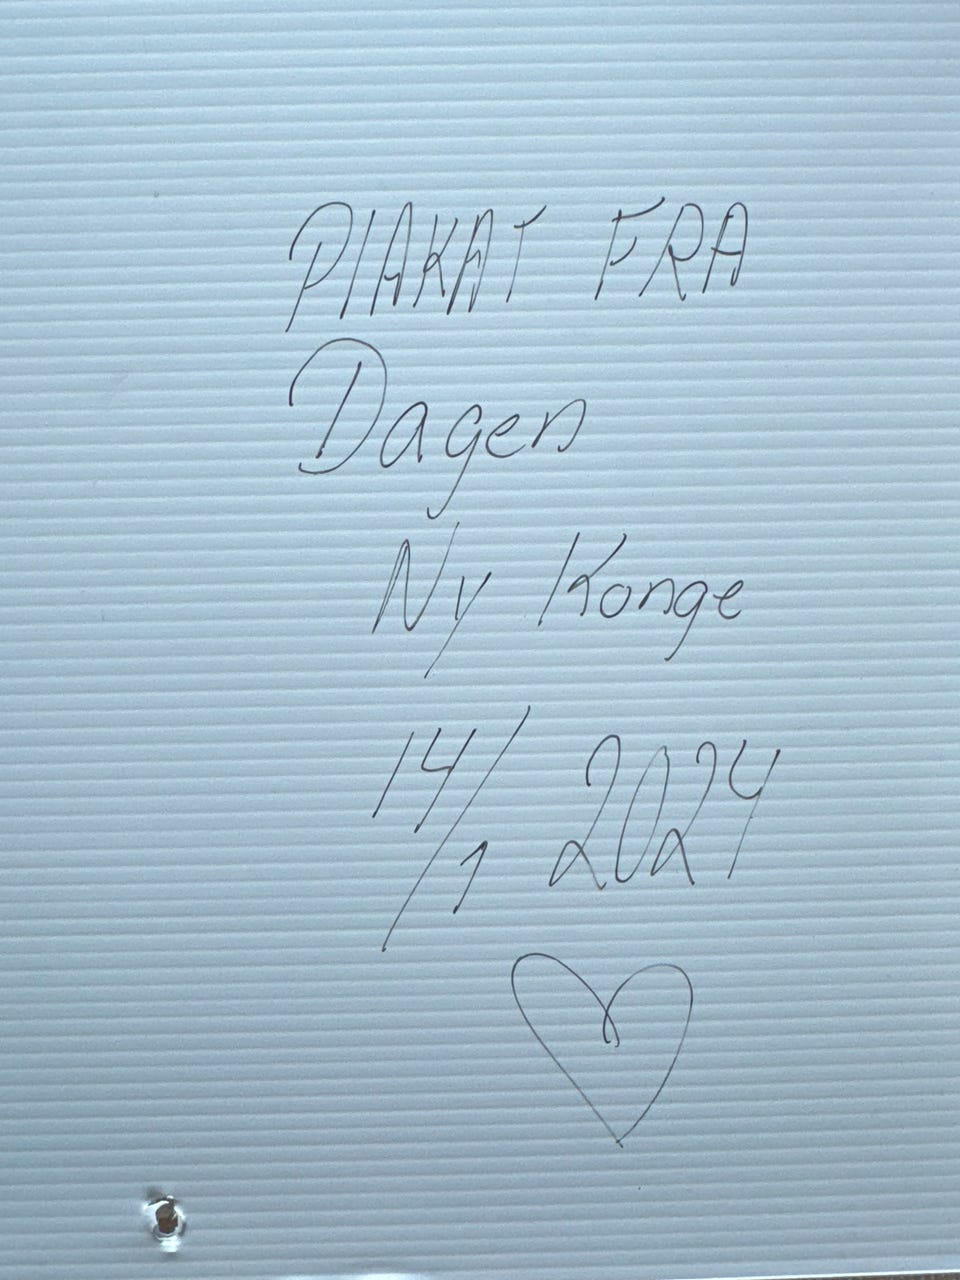 PlAKAT FRA
Dagen
Ny Konge
14/1 2024